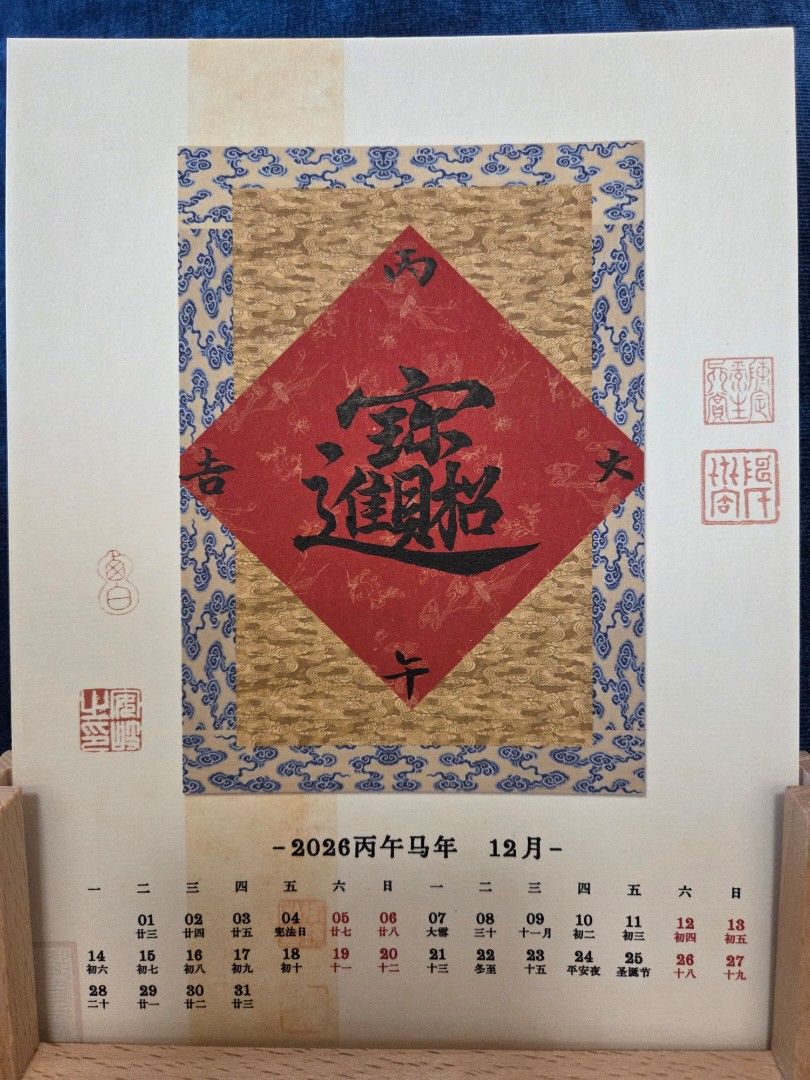 丙
吉 招財進寶 大
午
-2026丙午马年 12月-
一 二 三 四 五 六 日 一 二 三 四 五 六 日
01 02 03 04 05 06 07 08 09 10 11 12 13
廿三 廿四 廿五 宪法日 廿七 廿八 大雪 三十 十一月 初二 初三 初四 初五
14 15 16 17 18 19 20 21 22 23 24 25 26 27
初六 初七 初八 初九 初十 十一 十二 十三 冬至 十五 平安夜 圣诞节 十八 十九
28 29 30 31
二十 廿一 廿二 廿三